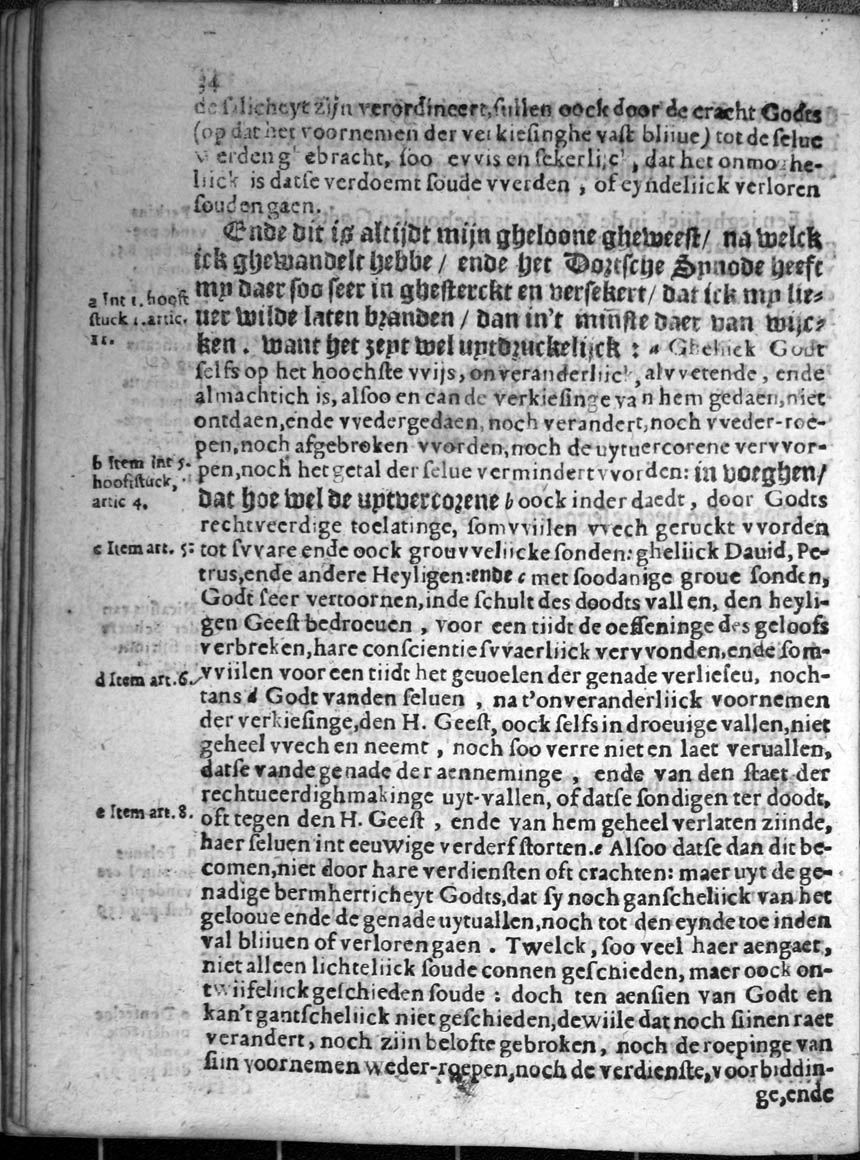 34
de salicheyt zijn verordineert, sullen oock door de cracht Godts
(op dat het voornemen der verkiesinghe vast bliiue) tot de selue
werden ghebracht, soo evvis en sekerliick, dat het onmoghe-
liick is datse verdoemt soude vverden, of eyndeliick verloren
souden gaen.
Ende dit is altijdt mijn gheloove gheweest/ na welck
ick ghewandelt hebbe / ende het Dortsche Synode heeft
a Int 1. hooft
stuck 1. artic.
11.
my daer soo seer in ghesterckt en versekert/ dat ick my lie-
uer wilde laten branden / dan in't minste daer van wijc-
ken. Want het zeyt wel uytdruckelijck: a Gheliick Godt
selfs op het hoochste vvijs, onveranderliick, alvvetende, ende
almachtich is, alsoo en can de verkiesinge van hem gedaen, niet
ontdaen, ende vvedergedaen, noch verandert, noch vveder-roe-
pen, noch afgebroken vvorden, noch de uytuercorene vervvor-
b Item int 5.
hooftstuck,
artic 4.
pen, noch het getal der selue vermindert vvorden: in voeghen/
dat hoe wel de uytvercozene b oock inder daedt, door Godts
rechtveerdige toelatinge, somvviilen vvech geruckt vvorden
c Item art. 5:
tot svvare ende oock grouvveliicke sonden: gheliick Dauid, Pe-
trus, ende andere Heyligen: ende c met soodanige groue sonden,
Godt seer vertoornen, inde schult des doodts vallen, den heyli-
gen Geest bedroeuen, voor een tiidt de oeffeninge des geloofs
verbreken, hare conscientie svvaerliick vervvonden, ende som-
d Item art. 6.
vviilen voor een tiidt het geuoelen der genade verliesen, noch-
tans d Godt vanden seluen, na t'onveranderliick voornemen
der verkiesinge, den H. Geest, oock selfs in droeuige vallen, niet
geheel vvech en neemt, noch soo verre niet en laet veruallen,
datse vande genade der aenneminge, ende van den staet der
rechtueerdighmakinge uyt-vallen, of datse sondigen ter doodt,
e Item art. 8.
oft tegen den H. Geest, ende van hem geheel verlaten ziinde,
haer seluen int eeuwige verderf storten. e Alsoo datse dan dit be-
comen, niet door hare verdiensten oft crachten: maer uyt de ge-
nadige bermherticheyt Godts, dat sy noch ganscheliick van het
gelooue ende de genade uytuallen, noch tot den eynde toe inden
val bliiuen of verloren gaen. Twelck, soo veel haer aengaet,
niet alleen lichteliick soude connen geschieden, maer oock on-
twiifeliick geschieden soude: doch ten aensien van Godt en
kan't gantscheliick niet geschieden, dewiile dat noch siinen raet
verandert, noch ziin belofte gebroken, noch de roepinge van
siin voornemen weder-roepen, noch de verdienste, voorbiddin-
ge, ende